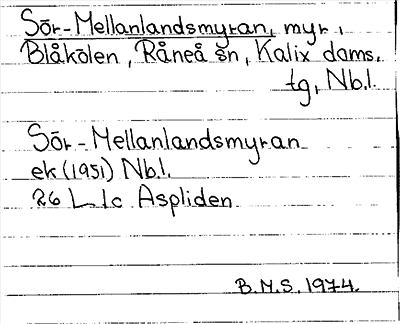 Sör-Mellanlandsmyran, myr,
Blåkölen, Råneå sn, Kalix doms.
tg, Nb.l.
Sör-Mellanlandsmyran
ek (1951) Nb.l.
26 L 1c Aspliden
B.M.S. 1974.